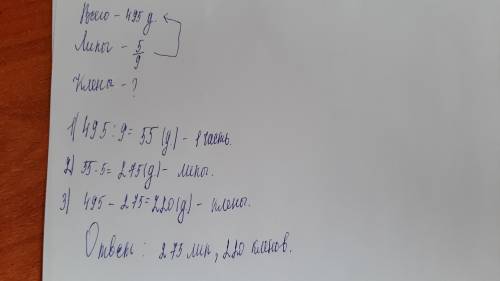 Всего - 495 д.
Липы - 5/9
Клены - ?
1) 495 : 9 = 55 (д) - 1 часть.
2) 55 · 5 = 275 (д) - липы.
3) 495 - 275 = 220 (д) - клены.
Ответ: 275 лип, 220 кленов.